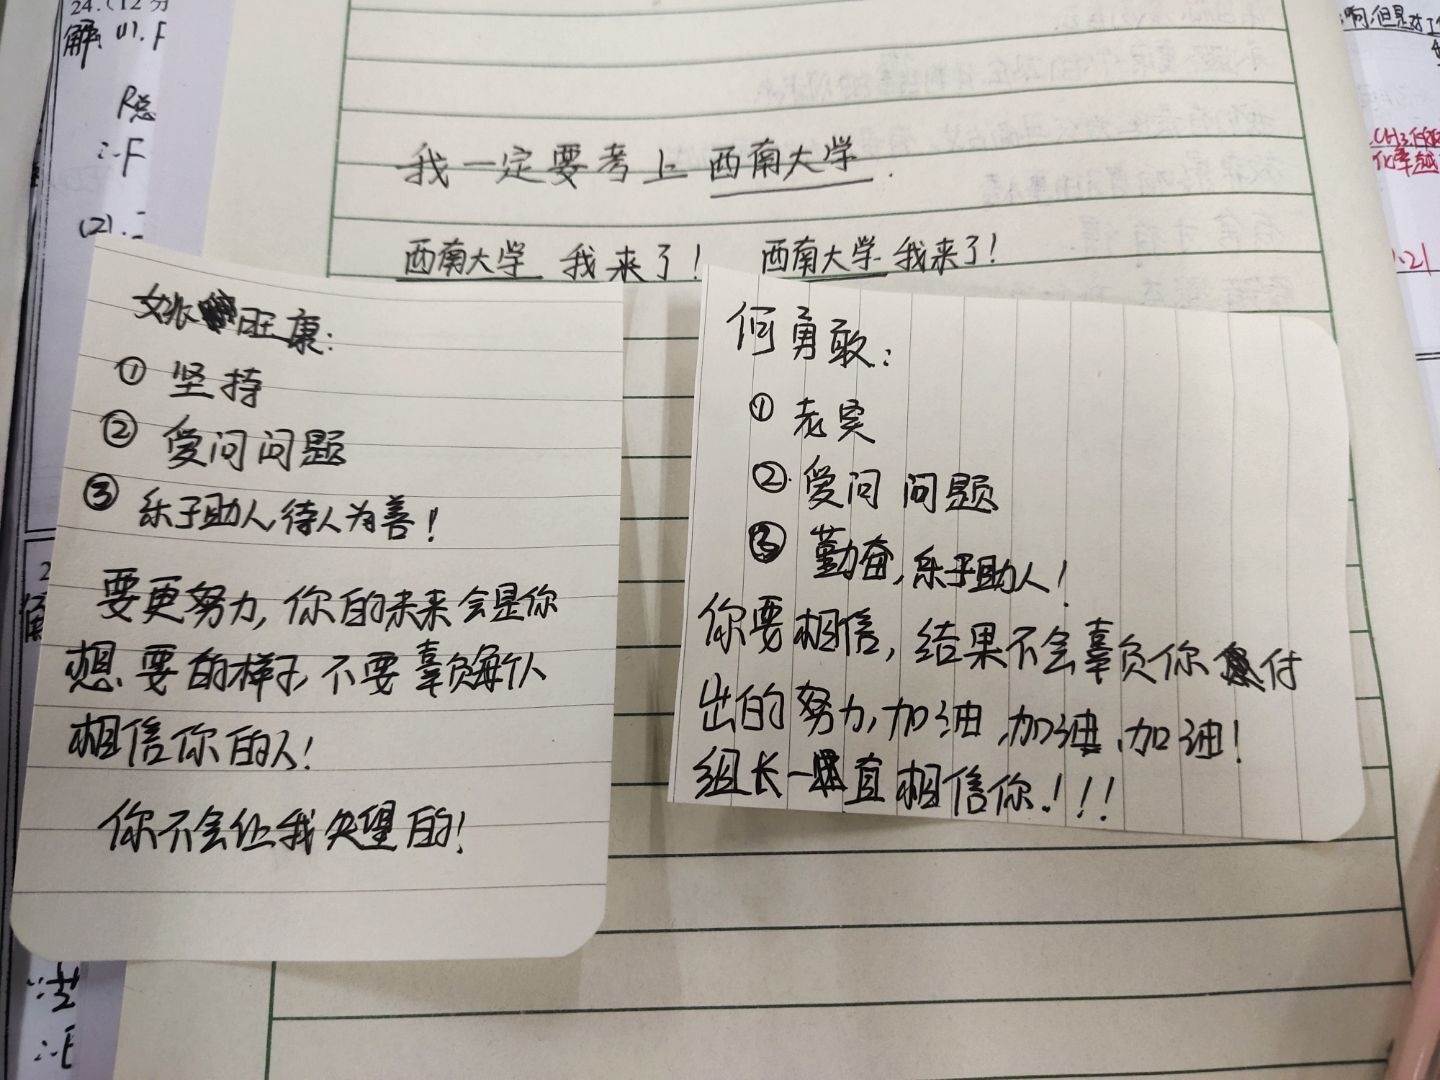 24.(12分
解:(1).F
R总
∴F
(2).
我一定要考上西南大学.
西南大学 我来了! 西南大学 我来了!
姚旺康:
① 坚持
② 爱问问题
③ 乐于助人,待人为善!
要更努力,你的未来会是你
想要的样子,不要辜负每个人
相信你的人!
你不会让我失望的!
何勇敢:
① 老实
② 爱问问题
③ 勤奋,乐于助人!
你要相信,结果不会辜负你付
出的努力,加油,加油,加油!
组长一直相信你!!!